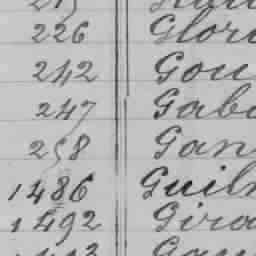 226 Glor
242 Gou
247 Gabo
258 Gan
1486 Guil
1492 Gira